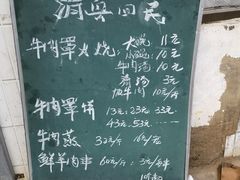 清真回民
牛肉罩火烧: 大碗 11元
小碗 10元
牛肉汤 10元
素汤 3元
饭牛肉 10元/斤
牛肉罩饼 13元 23元 33元
43元 53元
牛肉蒸 32元/斤 16元/
鲜羊肉串 60元/斤: 3元/串